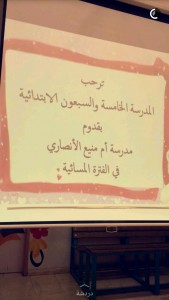 ترحب
المدرسة الخامسة والسبعون الابتدائية
بقدوم
مدرسة أم منيع الأنصاري
في الفترة المسائية
دردشة